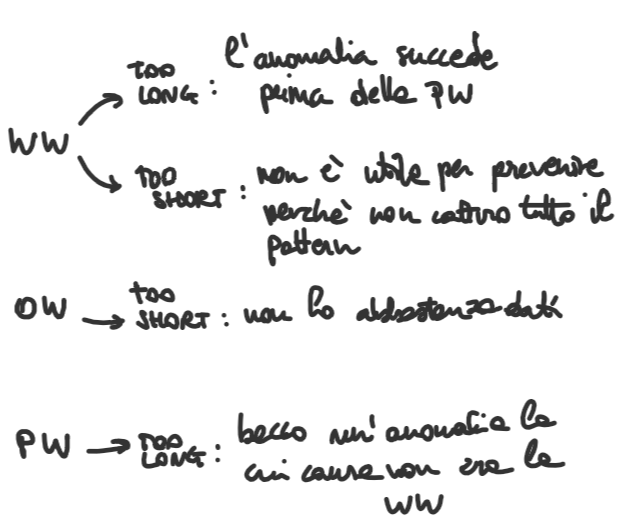 WW → TOO LONG : l'anomalia succede
prima della PW
→ TOO SHORT : non è utile per prevenire
perchè non catturo tutto il
pattern
OW → TOO SHORT : non ho abbastanza dati
PW → TOO LONG : becco un'anomalia la
cui causa non era la
WW